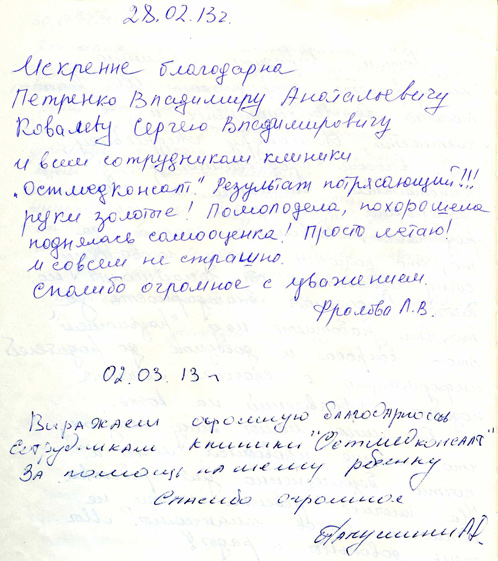 28.02.13г.
Искренне благодарна
Петренко Владимиру Анатольевичу
Ковалеву Сергею Владимировичу
и всем сотрудникам клиники
"Остмедконсалт." Результат потрясающий!!!
руки золотые! Помолодела, похорошела
поднялась самооценка! Просто летаю!
и совсем не страшно.
Спасибо огромное с уважением.
Фролова Л.В.
02.03.13г
Выражаем огромную благодарность
сотрудникам клиники "Остмедконсалт"
За помощь нашему ребенку
Спасибо огромное